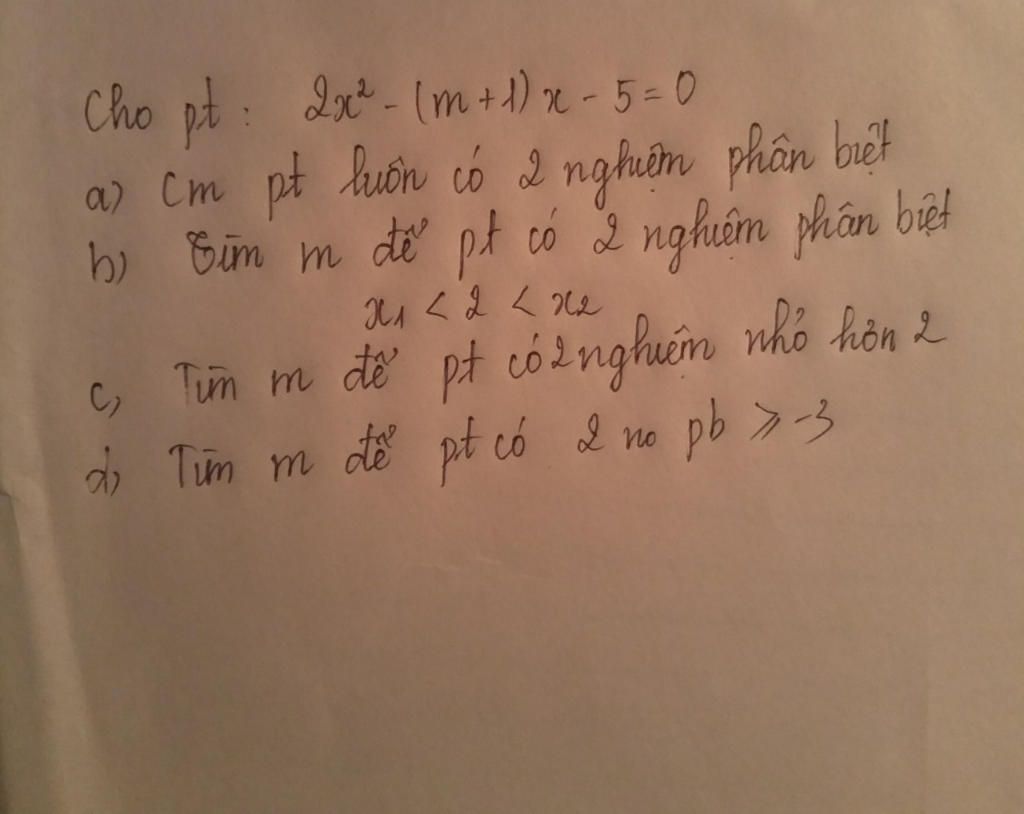 Cho pt : 2x² - (m+1) x - 5 = 0
a) Cm pt luôn có 2 nghiệm phân biệt
b) Tìm m để pt có 2 nghiệm phân biệt
x₁ < 2 < x₂
c, Tìm m để pt có 2 nghiệm nhỏ hơn 2
d, Tìm m để pt có 2 no pb ⩾ -3